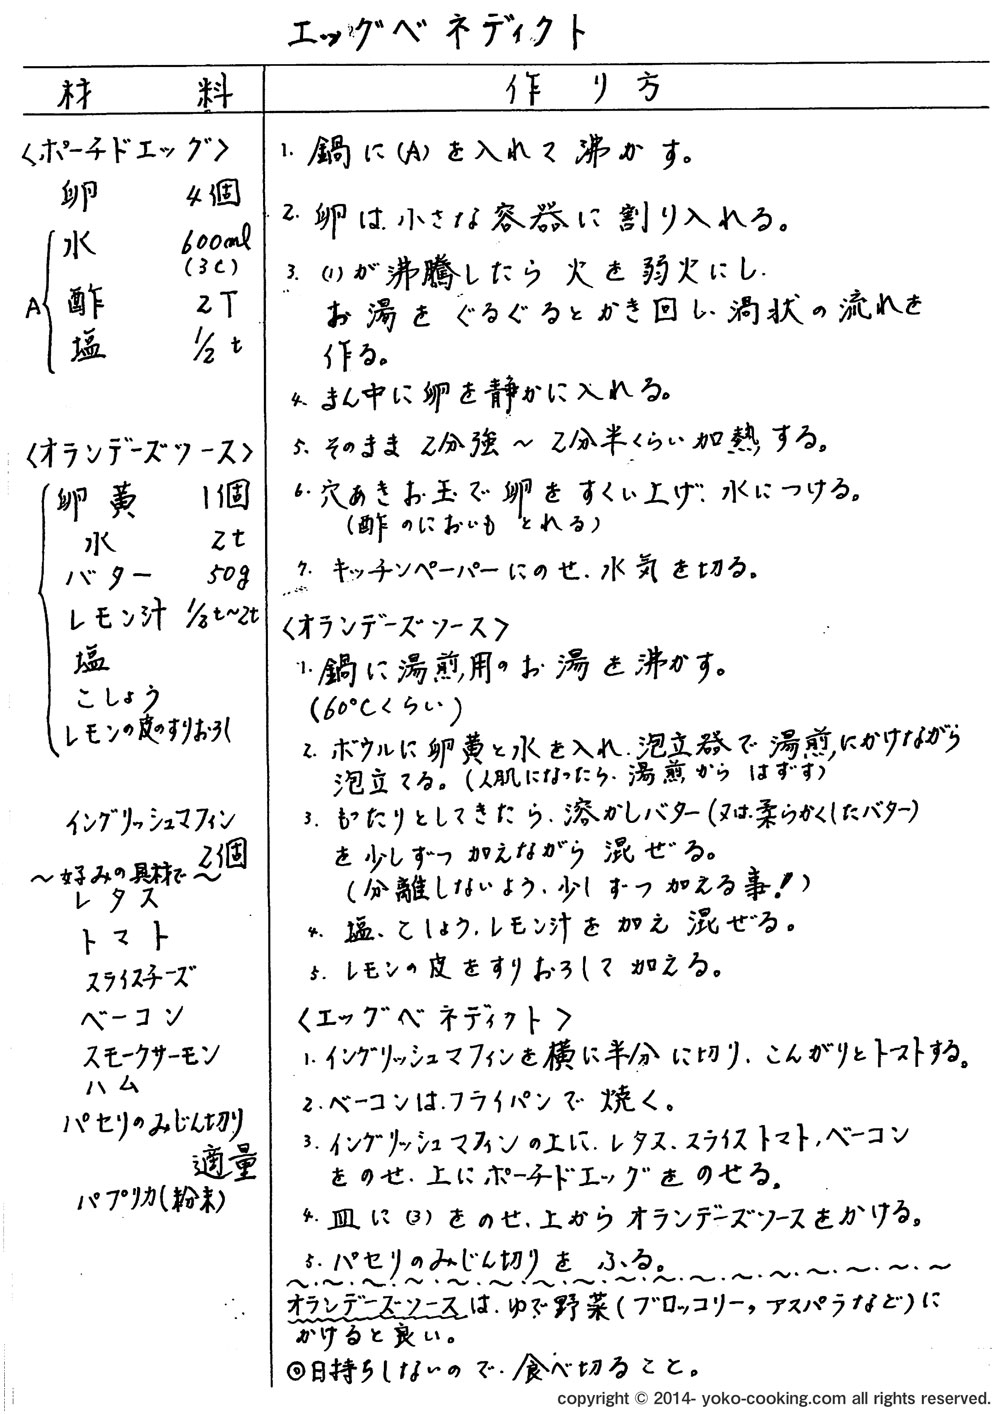 エッグベネディクト
材 料
作り方
〈ポーチドエッグ〉
卵 4個
A
水 600ml
(3C)
酢 2T
塩 1/2t
〈オランデーズソース〉
卵黄 1個
水 2t
バター 50g
レモン汁 1/3t〜2t
塩
こしょう
レモンの皮のすりおろし
イングリッシュマフィン
2個
〜好みの具材で〜
レタス
トマト
スライスチーズ
ベーコン
スモークサーモン
ハム
パセリのみじん切り
適量
パプリカ(粉末)
1. 鍋に(A)を入れて沸かす。
2. 卵は、小さな容器に割り入れる。
3. (1)が沸騰したら火を弱火にし、
お湯をぐるぐるとかき回し、渦状の流れを
作る。
4. まん中に卵を静かに入れる。
5. そのまま2分強〜2分半くらい加熱する。
6. 穴あきお玉で卵をすくい上げ、水につける。
(酢のにおいもとれる)
7. キッチンペーパーにのせ、水気を切る。
〈オランデーズソース〉
1. 鍋に湯煎用のお湯を沸かす。
(60℃くらい)
2. ボウルに卵黄と水を入れ、泡立器で湯煎にかけながら
泡立てる。(人肌になったら、湯煎からはずす)
3. もったりとしてきたら、溶かしバター(又は、柔らかくしたバター)
を少しずつ加えながら混ぜる。
(分離しないよう、少しずつ加える事!)
4. 塩、こしょう、レモン汁を加え混ぜる。
5. レモンの皮をすりおろして加える。
〈エッグベネディクト〉
1. イングリッシュマフィンを横に半分に切り、こんがりとトーストする。
2. ベーコンは、フライパンで焼く。
3. イングリッシュマフィンの上に、レタス、スライストマト、ベーコン
をのせ、上にポーチドエッグをのせる。
4. 皿に(3)をのせ、上からオランデーズソースをかける。
5. パセリのみじん切りをふる。
オランデーズソースは、ゆで野菜(ブロッコリー, アスパラなど)に
かけると良い。
◎日持ちしないので、食べ切ること。
copyright © 2014- yoko-cooking.com all rights reserved.